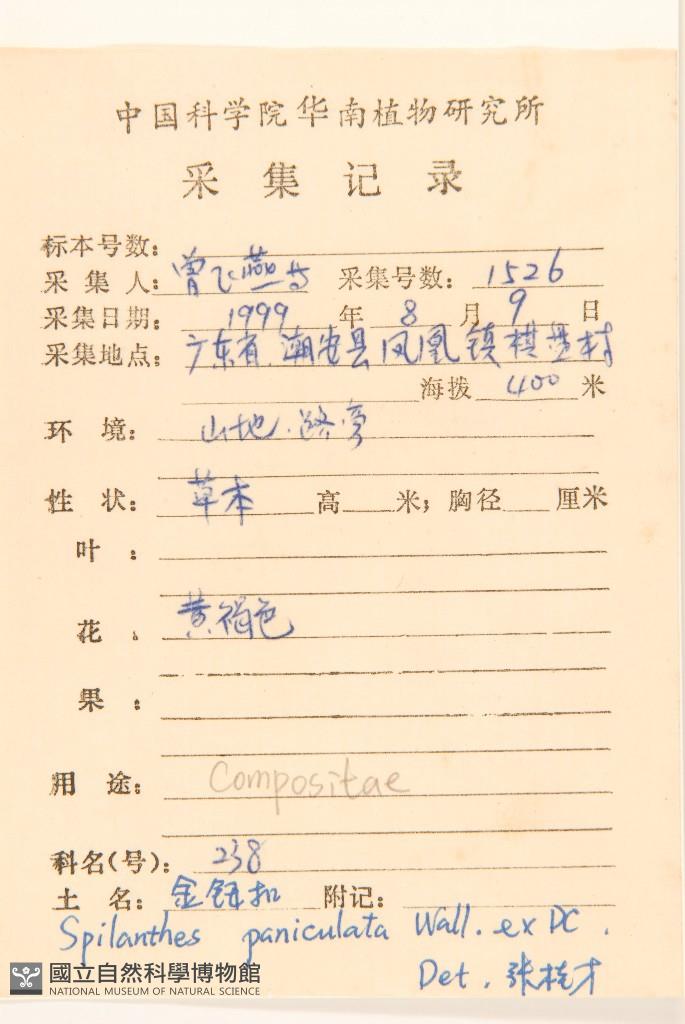 中国科学院华南植物研究所
采集记录
标本号数:
采集人: 曾飞燕 采集号数: 1526
采集日期: 1999 年 8 月 9 日
采集地点: 广东省.潮安县凤凰镇棋盘村
海拨 400 米
环境: 山地.路旁
性状: 草本 高 米; 胸径 厘米
叶:
花: 黄褐色
果:
用途: Compositae
科名(号): 238
土名: 金钮扣 附记:
Spilanthes paniculata Wall. ex DC.
Det. 张桂才
國立自然科學博物館
NATIONAL MUSEUM OF NATURAL SCIENCE